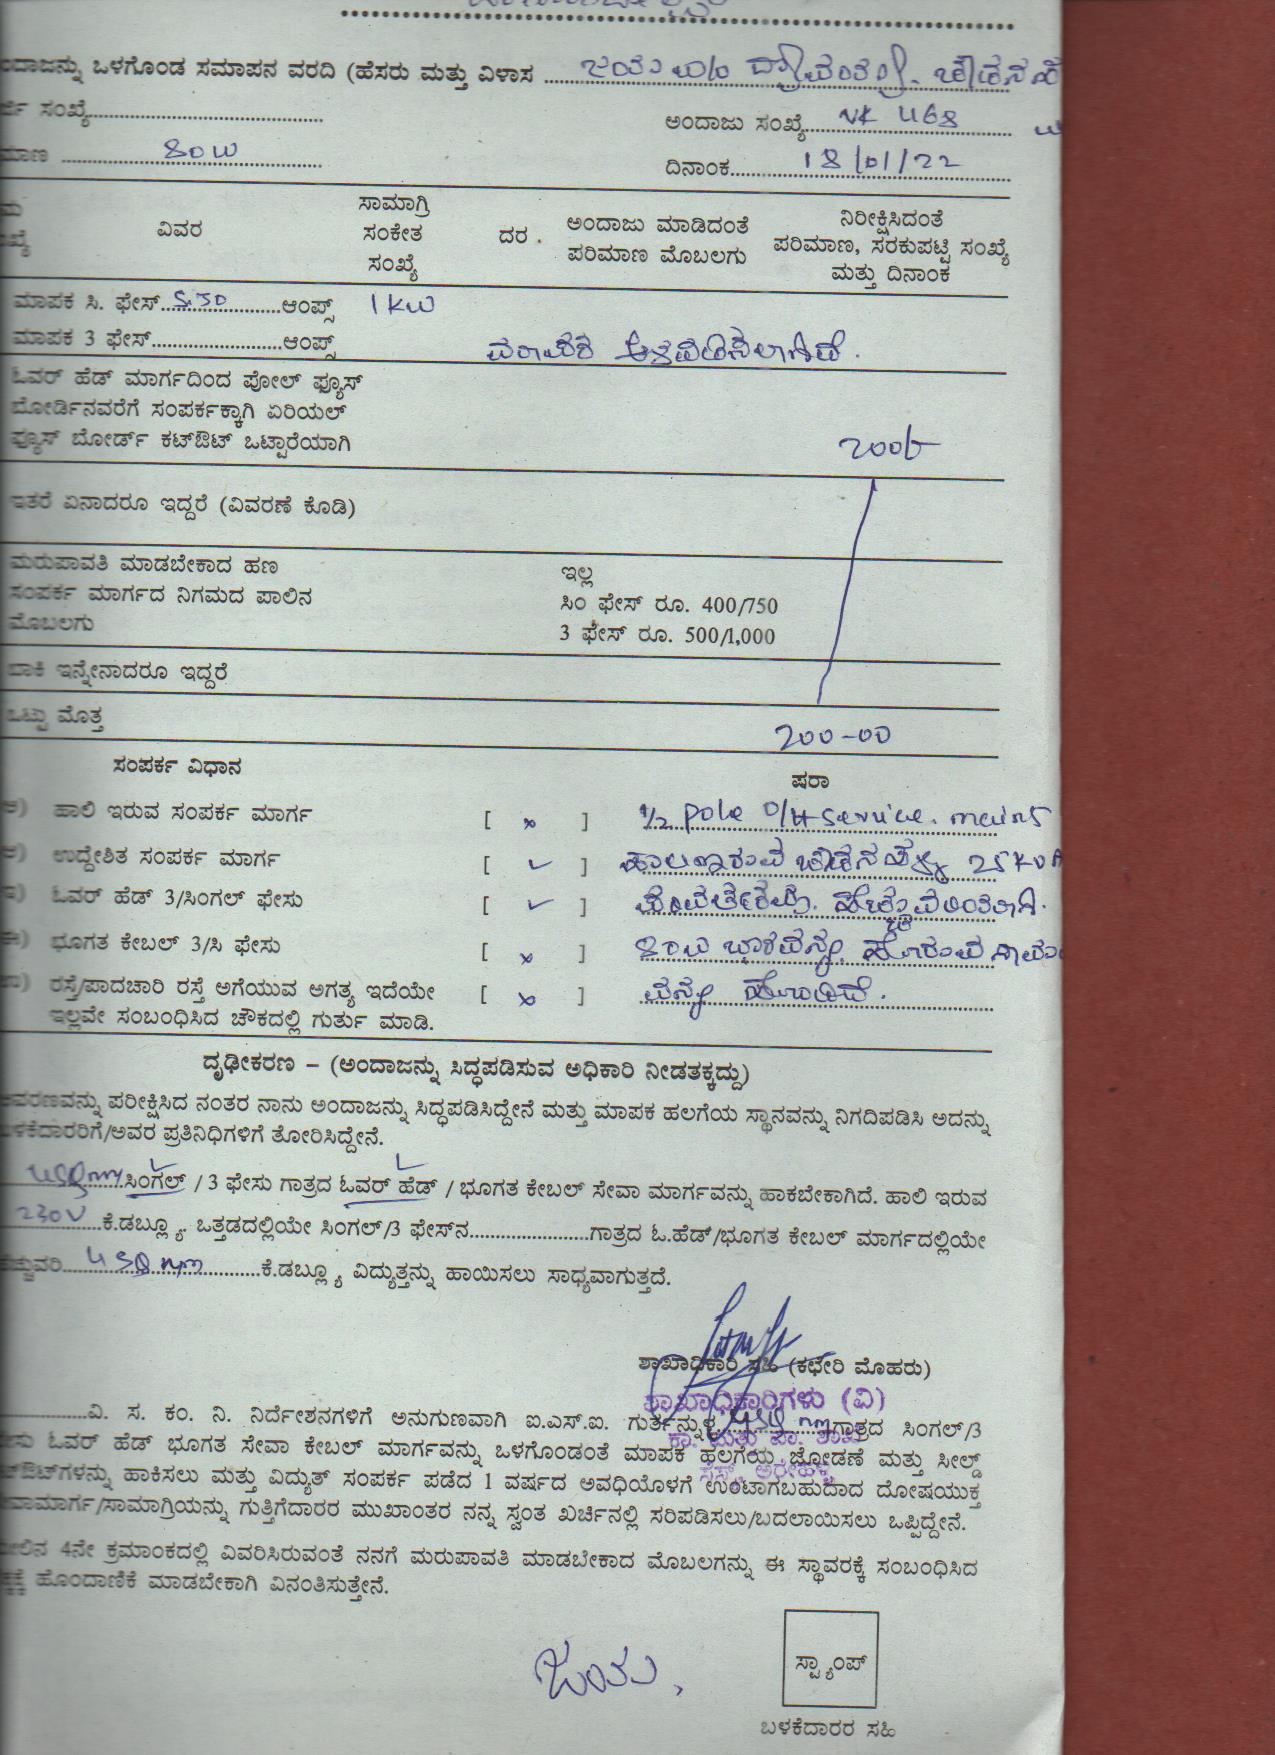 ಅಂದಾಜನ್ನು ಒಳಗೊಂಡ ಸಮಾಪನ ವರದಿ (ಹೆಸರು ಮತ್ತು ವಿಳಾಸ
ಸಂಖ್ಯೆ
ಅಂದಾಜು ಸಂಖ್ಯೆ NK 468
80W
ದಿನಾಂಕ 18/01/22
ವಿವರ ಸಾಮಾಗ್ರಿ ಸಂಕೇತ ಸಂಖ್ಯೆ ದರ . ಅಂದಾಜು ಮಾಡಿದಂತೆ ಪರಿಮಾಣ ಮೊಬಲಗು ನಿರೀಕ್ಷಿಸಿದಂತೆ ಪರಿಮಾಣ, ಸರಕುಪಟ್ಟಿ ಸಂಖ್ಯೆ ಮತ್ತು ದಿನಾಂಕ
ಮಾಪಕ ಸಿ. ಫೇಸ್ 5.30 ಆಂಪ್ಸ್ 1KW
ಮಾಪಕ 3 ಫೇಸ್ ಆಂಪ್ಸ್
ಓವರ್ ಹೆಡ್ ಮಾರ್ಗದಿಂದ ಪೋಲ್ ಫ್ಯೂಸ್
ಬೋರ್ಡಿನವರೆಗೆ ಸಂಪರ್ಕಕ್ಕಾಗಿ ಏರಿಯಲ್
ಫ್ಯೂಸ್ ಬೋರ್ಡ್ ಕಟ್‌ಔಟ್ ಒಟ್ಟಾರೆಯಾಗಿ
ಇತರೆ ಏನಾದರೂ ಇದ್ದರೆ (ವಿವರಣೆ ಕೊಡಿ)
ಮರುಪಾವತಿ ಮಾಡಬೇಕಾದ ಹಣ ಇಲ್ಲ
ಸಂಪರ್ಕ ಮಾರ್ಗದ ನಿಗಮದ ಪಾಲಿನ ಸಿಂ ಫೇಸ್ ರೂ. 400/750
ಮೊಬಲಗು 3 ಫೇಸ್ ರೂ. 500/1,000
ಬಾಕಿ ಇನ್ನೇನಾದರೂ ಇದ್ದರೆ
ಒಟ್ಟು ಮೊತ್ತ 200-00
ಸಂಪರ್ಕ ವಿಧಾನ ಷರಾ
ಹಾಲಿ ಇರುವ ಸಂಪರ್ಕ ಮಾರ್ಗ [ × ] 1/2 Pole O/H service. mains
ಉದ್ದೇಶಿತ ಸಂಪರ್ಕ ಮಾರ್ಗ [ ✓ ] 25KVA
ಓವರ್ ಹೆಡ್ 3/ಸಿಂಗಲ್ ಫೇಸು [ ✓ ]
ಭೂಗತ ಕೇಬಲ್ 3/ಸಿ ಫೇಸು [ × ]
ರಸ್ತೆ/ಪಾದಚಾರಿ ರಸ್ತೆ ಅಗೆಯುವ ಅಗತ್ಯ ಇದೆಯೇ [ × ]
ಇಲ್ಲವೇ ಸಂಬಂಧಿಸಿದ ಚೌಕದಲ್ಲಿ ಗುರ್ತು ಮಾಡಿ.
ದೃಢೀಕರಣ – (ಅಂದಾಜನ್ನು ಸಿದ್ಧಪಡಿಸುವ ಅಧಿಕಾರಿ ನೀಡತಕ್ಕದ್ದು)
ಆವರಣವನ್ನು ಪರೀಕ್ಷಿಸಿದ ನಂತರ ನಾನು ಅಂದಾಜನ್ನು ಸಿದ್ಧಪಡಿಸಿದ್ದೇನೆ ಮತ್ತು ಮಾಪಕ ಹಲಗೆಯ ಸ್ಥಾನವನ್ನು ನಿಗದಿಪಡಿಸಿ ಅದನ್ನು
ಬಳಕೆದಾರರಿಗೆ/ಅವರ ಪ್ರತಿನಿಧಿಗಳಿಗೆ ತೋರಿಸಿದ್ದೇನೆ.
4SQmm ಸಿಂಗಲ್ / 3 ಫೇಸು ಗಾತ್ರದ ಓವರ್ ಹೆಡ್ / ಭೂಗತ ಕೇಬಲ್ ಸೇವಾ ಮಾರ್ಗವನ್ನು ಹಾಕಬೇಕಾಗಿದೆ. ಹಾಲಿ ಇರುವ
230V ಕೆ.ಡಬ್ಲ್ಯೂ. ಒತ್ತಡದಲ್ಲಿಯೇ ಸಿಂಗಲ್/3 ಫೇಸ್‌ನ ಗಾತ್ರದ ಓ.ಹೆಡ್/ಭೂಗತ ಕೇಬಲ್ ಮಾರ್ಗದಲ್ಲಿಯೇ
ಹೆಚ್ಚುವರಿ 4SQ mm ಕೆ.ಡಬ್ಲ್ಯೂ ವಿದ್ಯುತ್ತನ್ನು ಹಾಯಿಸಲು ಸಾಧ್ಯವಾಗುತ್ತದೆ.
ಶಾಖಾಧಿಕಾರಿ ಸಹಿ (ಕಛೇರಿ ಮೊಹರು)
ಶಾಖಾಧಿಕಾರಿಗಳು (ವಿ)
ವಿ. ಸ. ಕಂ. ನಿ. ನಿರ್ದೇಶನಗಳಿಗೆ ಅನುಗುಣವಾಗಿ ಐ.ಎಸ್.ಐ. ಗುರ್ತನ್ನುಳ್ಳ 4SQ mm ಗಾತ್ರದ ಸಿಂಗಲ್/3
ಫೇಸು ಓವರ್ ಹೆಡ್ ಭೂಗತ ಸೇವಾ ಕೇಬಲ್ ಮಾರ್ಗವನ್ನು ಒಳಗೊಂಡಂತೆ ಮಾಪಕ ಹಲಗೆಯ ಜೋಡಣೆ ಮತ್ತು ಸೀಲ್ಡ್
ಕಟ್‌ಔಟ್‌ಗಳನ್ನು ಹಾಕಿಸಲು ಮತ್ತು ವಿದ್ಯುತ್ ಸಂಪರ್ಕ ಪಡೆದ 1 ವರ್ಷದ ಅವಧಿಯೊಳಗೆ ಉಂಟಾಗಬಹುದಾದ ದೋಷಯುಕ್ತ
ಸೇವಾಮಾರ್ಗ/ಸಾಮಾಗ್ರಿಯನ್ನು ಗುತ್ತಿಗೆದಾರರ ಮುಖಾಂತರ ನನ್ನ ಸ್ವಂತ ಖರ್ಚಿನಲ್ಲಿ ಸರಿಪಡಿಸಲು/ಬದಲಾಯಿಸಲು ಒಪ್ಪಿದ್ದೇನೆ.
ಮೇಲಿನ 4ನೇ ಕ್ರಮಾಂಕದಲ್ಲಿ ವಿವರಿಸಿರುವಂತೆ ನನಗೆ ಮರುಪಾವತಿ ಮಾಡಬೇಕಾದ ಮೊಬಲಗನ್ನು ಈ ಸ್ಥಾವರಕ್ಕೆ ಸಂಬಂಧಿಸಿದ
ಹೊಂದಾಣಿಕೆ ಮಾಡಬೇಕಾಗಿ ವಿನಂತಿಸುತ್ತೇನೆ.
ಸ್ಟ್ಯಾಂಪ್
ಬಳಕೆದಾರರ ಸಹಿ